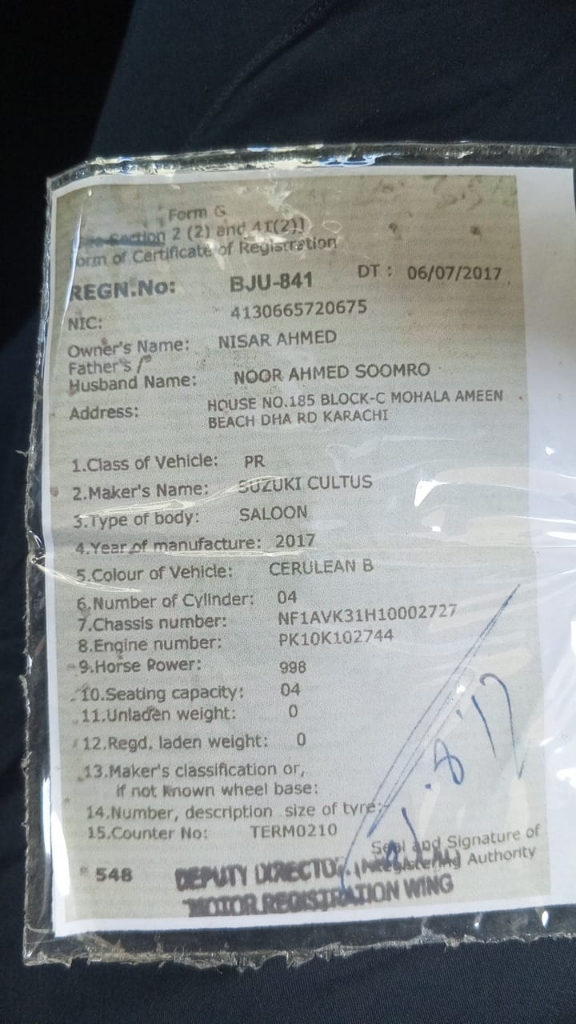 Form G
Section 2 (2) and 41(2)]
orm of Certificate of Registration
REGN.No: BJU-841 DT : 06/07/2017
NIC: 4130665720675
Owner's Name: NISAR AHMED
Father's /
Husband Name: NOOR AHMED SOOMRO
Address: HOUSE NO.185 BLOCK-C MOHALA AMEEN
BEACH DHA RD KARACHI
1.Class of Vehicle: PR
2.Maker's Name: SUZUKI CULTUS
3.Type of body: SALOON
4.Year of manufacture: 2017
5.Colour of Vehicle: CERULEAN B
6.Number of Cylinder: 04
7.Chassis number: NF1AVK31H10002727
8.Engine number: PK10K102744
9.Horse Power: 998
10.Seating capacity: 04
11.Unladen weight: 0
12.Regd. laden weight: 0
13.Maker's classification or,
if not known wheel base:
14.Number, description size of tyre:
15.Counter No: TERM0210
Seal and Signature of
Registering Authority
548
DEPUTY DIRECTOR
MOTOR REGISTRATION WING